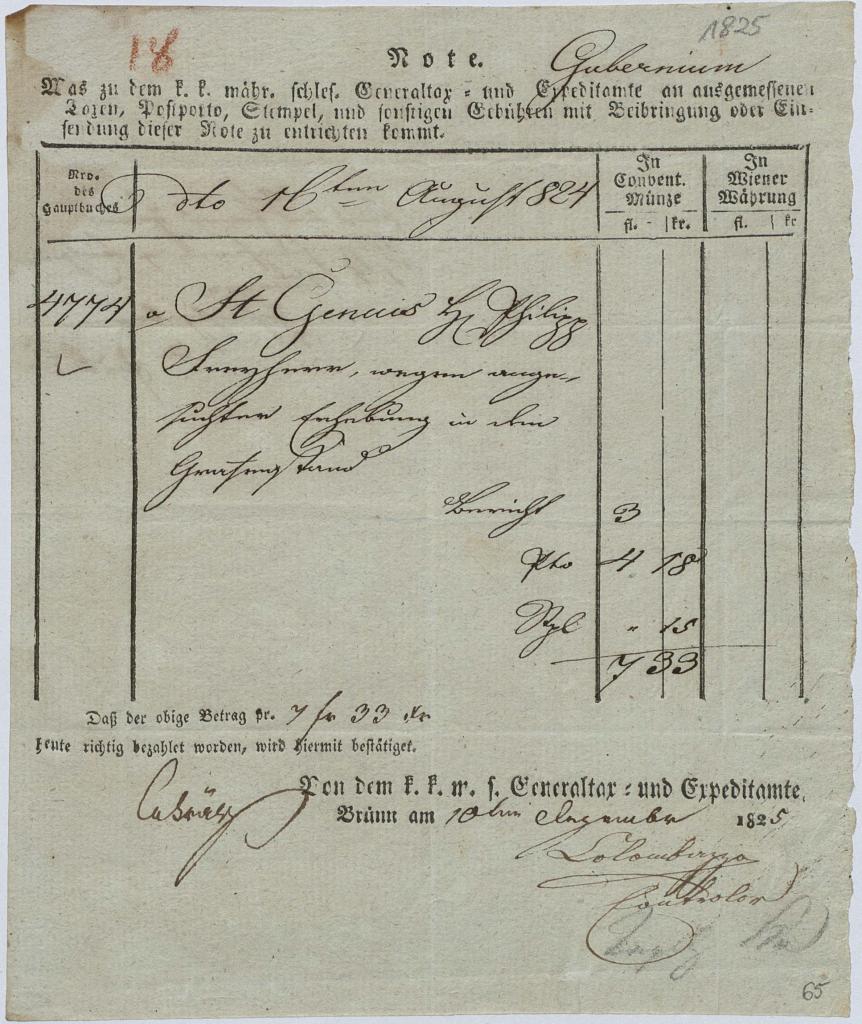 1825
18
Note.
Gubernium
Was zu dem k. k. mähr. schles. Generaltax- und Expeditamte an ausgemessenen
Taxen, Postporto, Stempel, und sonstigen Gebühren mit Beibringung oder Ein-
sendung dieser Note zu entrichten kommt.
Nro. des Hauptbuches
dto 16ten August 824
In Convent. Münze
In Wiener Währung
fl. kr. fl. kr
4774 a St Genois H. Philipp
Freyherr, wegen ange-
suchter Erhebung in den
Grafenstand
Bericht 3
Pto 4 18
Stpl " 15
7 33
Daß der obige Betrag pr. 7 fr 33 kr
heute richtig bezahlet worden, wird hiermit bestätiget.
Von dem k. k. m. s. Generaltax- und Expeditamte.
Brünn am 10ten Dezember 1825
Colombazzo
Controlor
65